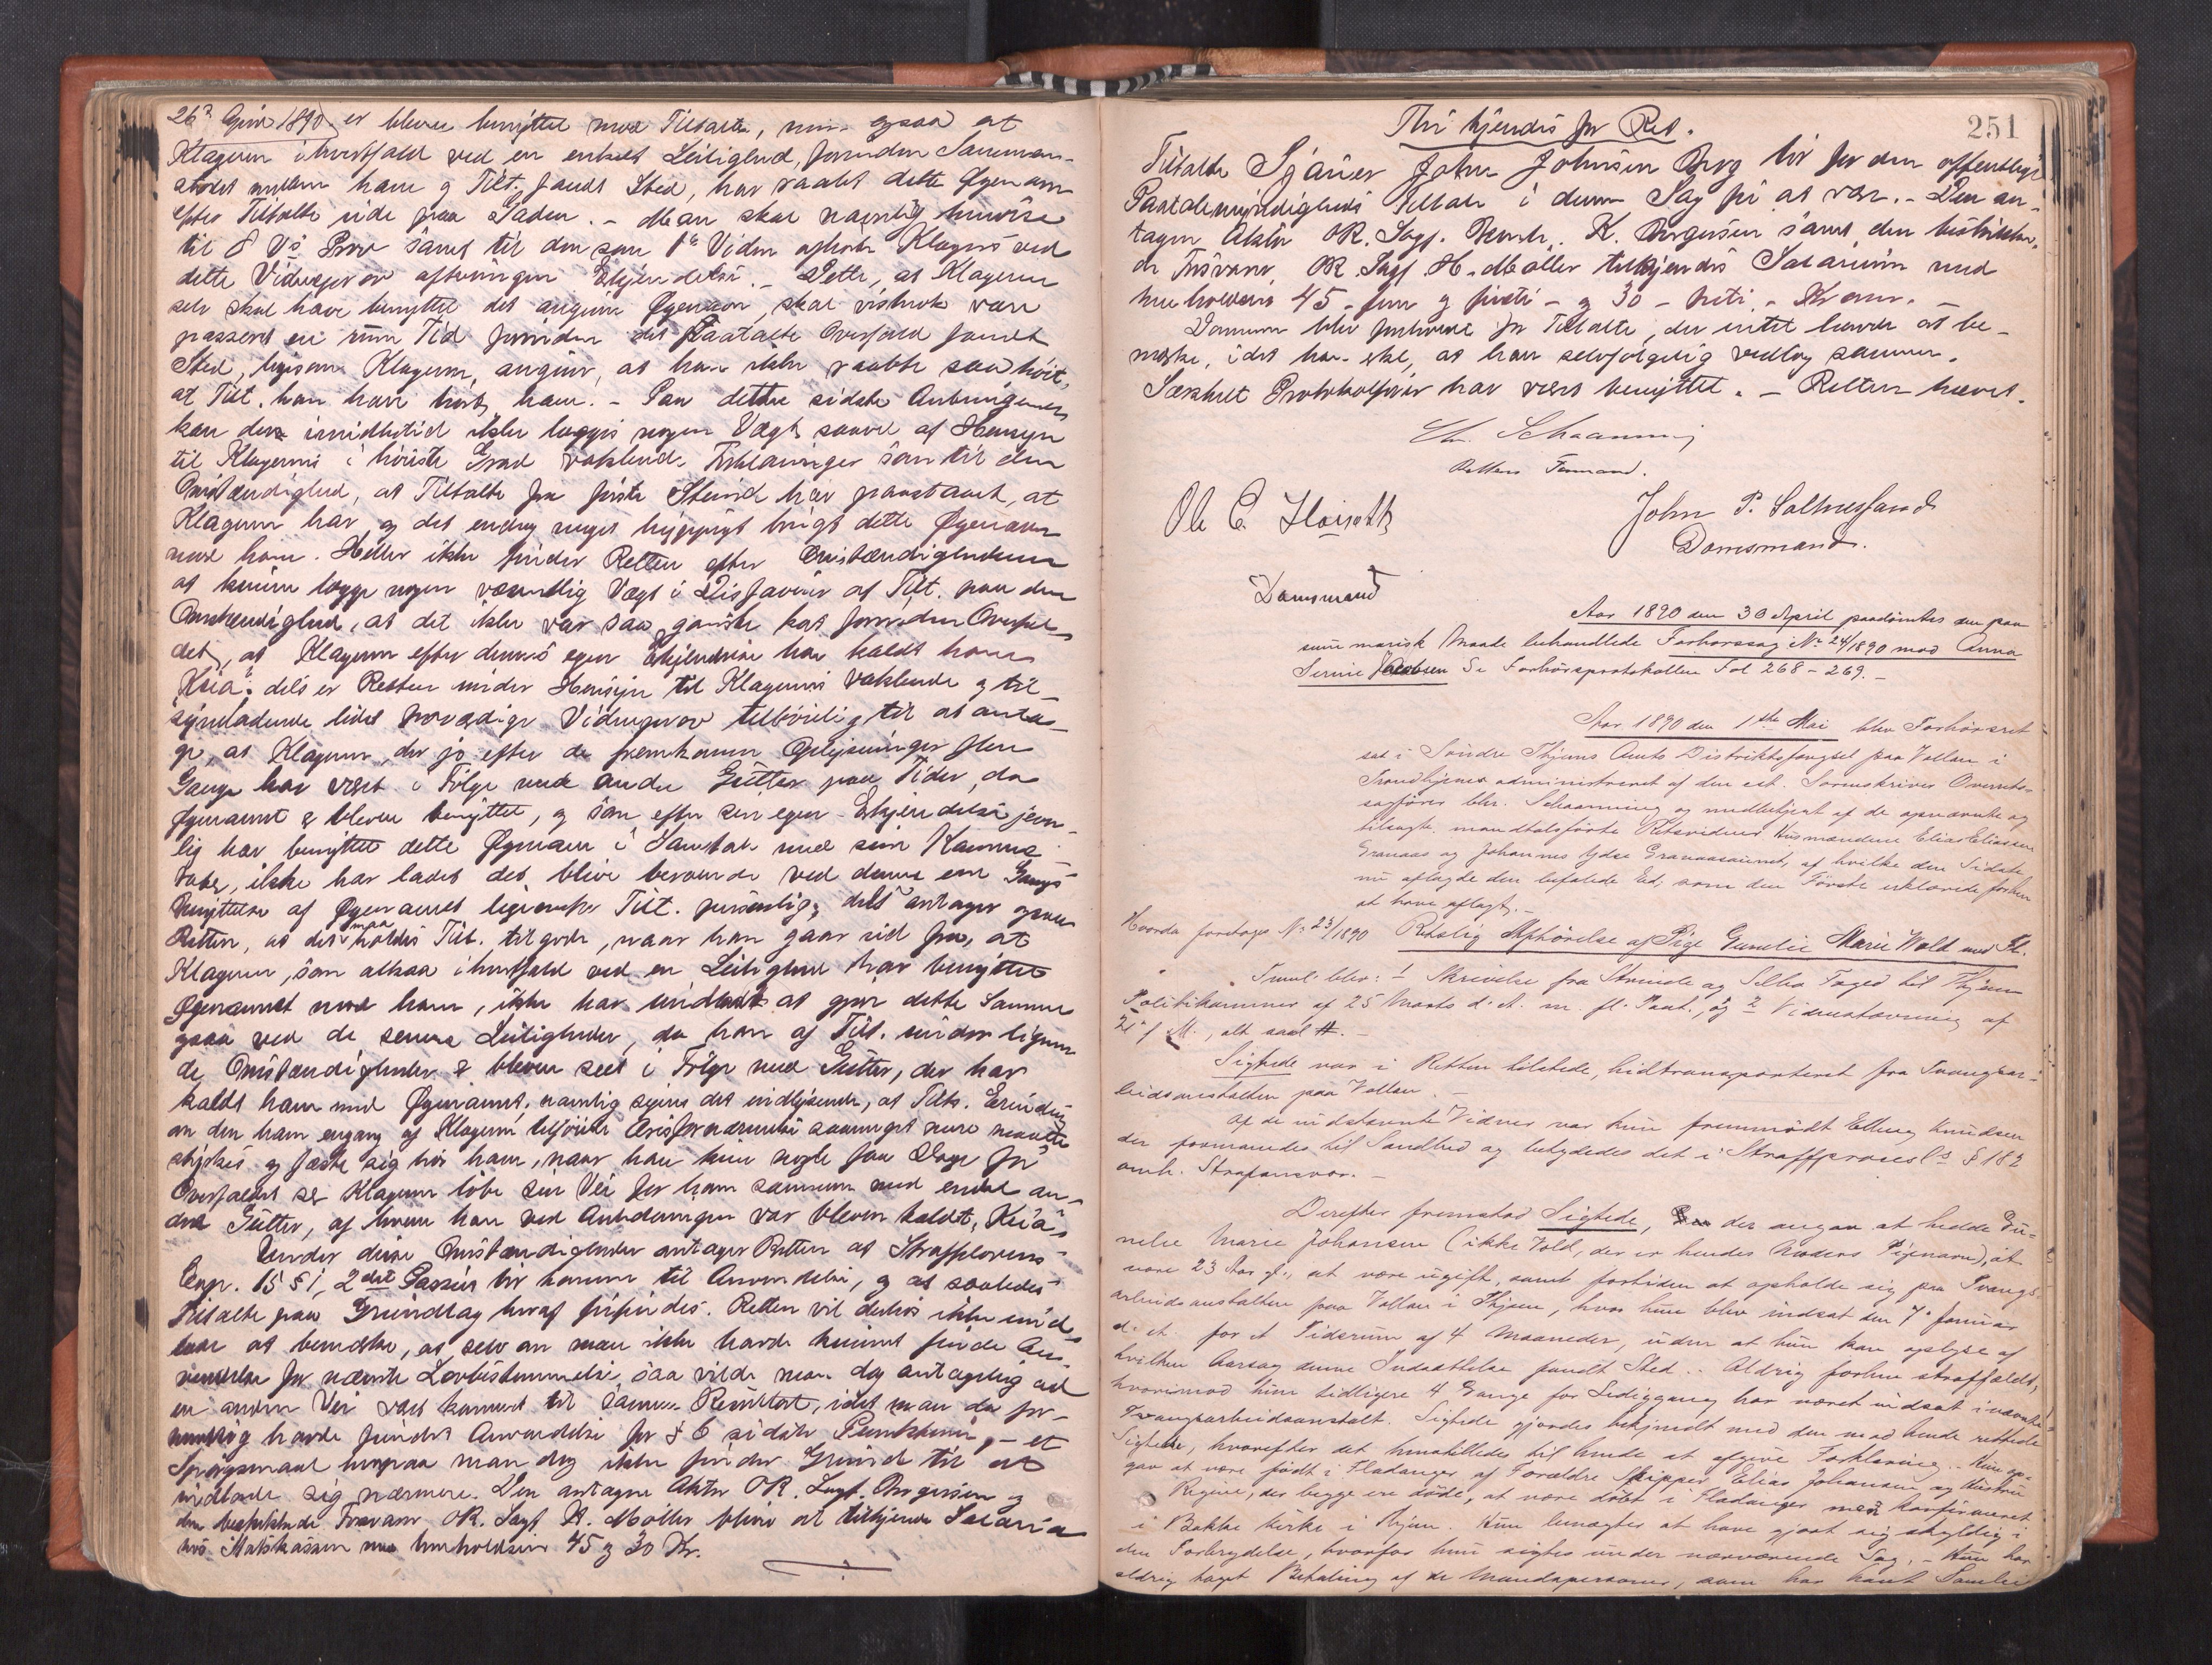 26de April 1890 er bleven benyttet mod Tiltalte, men ogsaa at
Klageren ihvertfald ved en enkelt Leilighed, forinden Sammen-
stødet mellem ham og Tilt. fandt Sted, har raabt dette Øgenavn
efter Tiltalte ude paa Gaden. – Man skal navnlig henvise
til 8 Vs Prov samt til den som 1ste Vidne afhørte Klagers ved
dette Vidneprov aftvungne Erkjendelse. – Dette, at Klageren
selv skal have benyttet det angivne Øgenavn, skal vistnok være
passeret en rum Tid forinden det paatalte Overfald fandt
Sted, ligesom Klageren angiver, at han ikke raabte saa høit,
at Tilt. kan have hørt ham. – Paa dette sidste Anbringende
kan der imidlertid ikke lægges nogen Vægt saavel af Hensyn
til Klagerens i høieste Grad vaklende Forklaringer som til den
Omstændighed, at Tiltalte fra første Stund har paastaaet, at
Klageren har, og det endog meget hyppigt brugt dette Øgenavn
mod ham. Heller ikke finder Retten efter Omstændighederne
at kunne lægge nogen væsentlig Vægt i Disfavør af Tilt. paa den
Omstændighed, at det ikke var saa ganske kort forinden Overfal-
det, at Klageren efter dennes egen Erkjendelse har kaldt ham
Kuia: dels er Retten under Hensyn til Klagerens vaklende og til-
syneladende lidet troværdige Vidneprov tilbøielig til at anta-
ge, at Klageren, der jo efter de fremkomne Oplysninger flere
Gange har været i Følge med andre Gutter paa Tider, da
Øgenavnet er bleven benyttet, og som efter sin egen Erkjendelse jevn-
lig har benyttet dette Øgenavn i Samtale med sine Kamme-
rater, ikke har ladet det blive beroende ved denne ene Gangs
Benyttelse af Øgenavnet ligeoverfor Tilt. personlig, dels antager ogsaa
Retten, at det maa holdes Tilt. tilgode, naar han gaar ud fra, at
Klageren, som altsaa ihvertfald ved en Leilighed har benyttet
Øgenavnet mod ham, ikke har undladt at gjøre dette Samme
ogsaa ved de senere Leiligheder, da han af Tilt. under lignen-
de Omstændigheder er bleven seet i Følge med Gutter, der har
kaldt ham med Øgenavnet, navnlig synes det indlysende, at Tilts. Erindring
om den ham engang af Klageren tilføiede Æresfornærmelse saameget mere maatte
styrkes og fæste sig hos ham, naar han kun nogle faa Dage før
Overfaldet saa Klageren løbe sin Vei for ham sammen med endel an-
dre Gutter, af hvem han ved Anledningen var bleven kaldt, Kuia.
Under disse Omstændigheder antager Retten at Straffelovens
Cap. 15 § 1, 2det Passus bør komme til Anvendelse, og at saaledes
Tiltalte paa Grundlag heraf frifindes. Retten vil derhos ikke und-
lade at bemærke, at selv om man ikke havde kunnet finde An-
vendelse for nævnte Lovbestemmelse, saa vilde man dog antagelig ad
en anden Vei være kommet til samme Resultat, idet man da for-
mentlig havde fundet Anvendelse for § 6 sidste Punktum, – et
Spørgsmaal hvorpaa man dog ikke finder Grund til at
indlade sig nærmere. Den antagne Aktor OR. Sagf. Borgersen og
den beskikkede Forsvarer OR. Sagf. H. Møller bliver at tilkjende Salaria
hos Statskassen med henholdsvis 45 og 30 Kr.
251
Thi kjendes for Ret.
Tiltalte Sjauer John Johnsen Berg bør for den offentlige
Paatalemyndigheds Tiltale i denne Sag fri at være. – Den an-
tagne Aktor OR. Sagf. K. Borgersen samt den beskikke-
de Forsvarer OR. Sagf. H. Møller tilkjendes Salarium med
henholdsvis 45 – fem og firti – og 30 – treti – Kroner. –
Dommen blev forkyndt for Tiltalte, der intet havde at be-
mærke, idet han erkl. at han selvfølgelig vedtog samme.
Særskilt Protokolfører har været benyttet. – Retten hævet.
Chr. Schaanning
Rettens Formand.
Ole E. Hoiseth
Domsmand
John P. Solhussand
Domsmand.
Aar 1890 den 30 April paadømtes den paa
summarisk Maade behandlede Forhørssag No 24/1890 mod Anna
Serine Jacobsen Se Forhørsprotokollen Fol 268 – 269. –
Aar 1890 den 1ste Mai blev Forhørsret
sat i Søndre Thjems Amts Distriktsfængsel paa Vollan i
Trondhjem administreret af den cst. Sorenskriver Overrets-
sagfører Chr. Schaanning og medbetjent af de opnævnte og
tilsagte mandtalsførte Retsvidner Husmændene Elias Eliassen
Granaas og Johannes Lydse Granaasaunet, af hvilke den Sidste
nu aflagde den befalede Ed, som den Første erklærede forhen
at have aflagt. –
Hvorda foretoges No 23/1890 Retslig Afhørelse af Pige Gunelie Marie Wold med Fl.
Freml. blev: 1 Skrivelse fra Strinde og Selbo Foged til Thjems
Politikammer af 25 Marts d. A. m. fl. Paat., og 2 Vidnestævning af
21 f. M., alt saal. #. –
Sigtede var i Retten tilstede, hidtransporteret fra Tvangsar-
beidsanstalten paa Vollan. –
Af de indstævnte Vidner var kun fremmødt Elling Knudsen
der formanedes til Sandhed og betydedes det i Straffprocesls § 182
omh. Strafansvar. –
Derefter fremstod Sigtede, der angav at hedde Gu-
nelie Marie Johansen (ikke Vold, der er hendes Moders Pigenavn), at
være 23 Aar gl., at være ugift, samt fortiden at opholde sig paa Tvangs-
arbeidsanstalten paa Vollan i Thjem, hvor hun blev indsat den 7 Januar
d. A. for et Tidsrum af 4 Maaneder, uden at hun kan oplyse af
hvilken Aarsag denne Indsættelse fandt Sted. – Aldrig forhen straffældt,
hvorimod hun tidligere 4 Gange for Lediggang har været indsat i nævnte
Tvangsarbeidsanstalt. Sigtede gjordes bekjendt med den mod hende rettede
Sigtelse, hvorefter det henstilledes til hende at afgive Forklaring. – Hun op-
gav at være født i Fladanger af Forældre Skipper Elias Johansen og Hustru
Regine, der begge ere døde, at være døbt i Fladanger men konfirmeret
i Bakke Kirke i Thjem. Hun benægtes at have gjort sig skyldig i
den Forbrydelse, hvorfor hun sigtes under nærværende Sag. – Hun har
aldrig taget Betaling af de Mandspersoner, som har havt Samleie